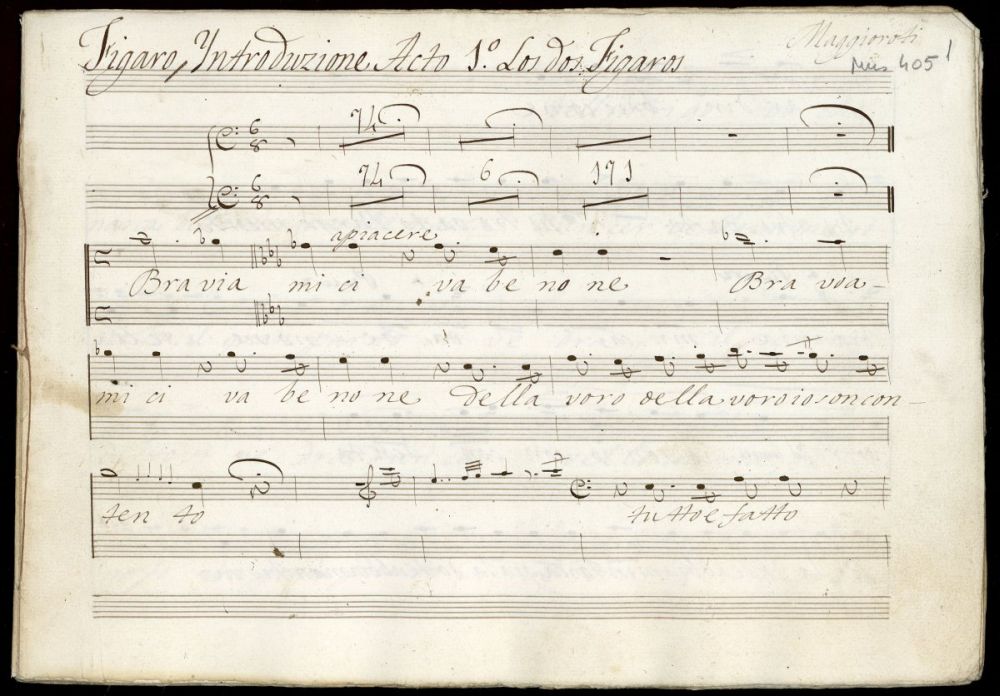 Figaro, Yntroduzione Acto 1º. Los dos Figaros
Maggioroti
Mus 405 1
6 8 74
6 8 74 6 171
apiacere
Bravia mi ci va be no ne Bra voa-
mi ci va be no ne della voro della voro io son con-
ten to tutto e fatto